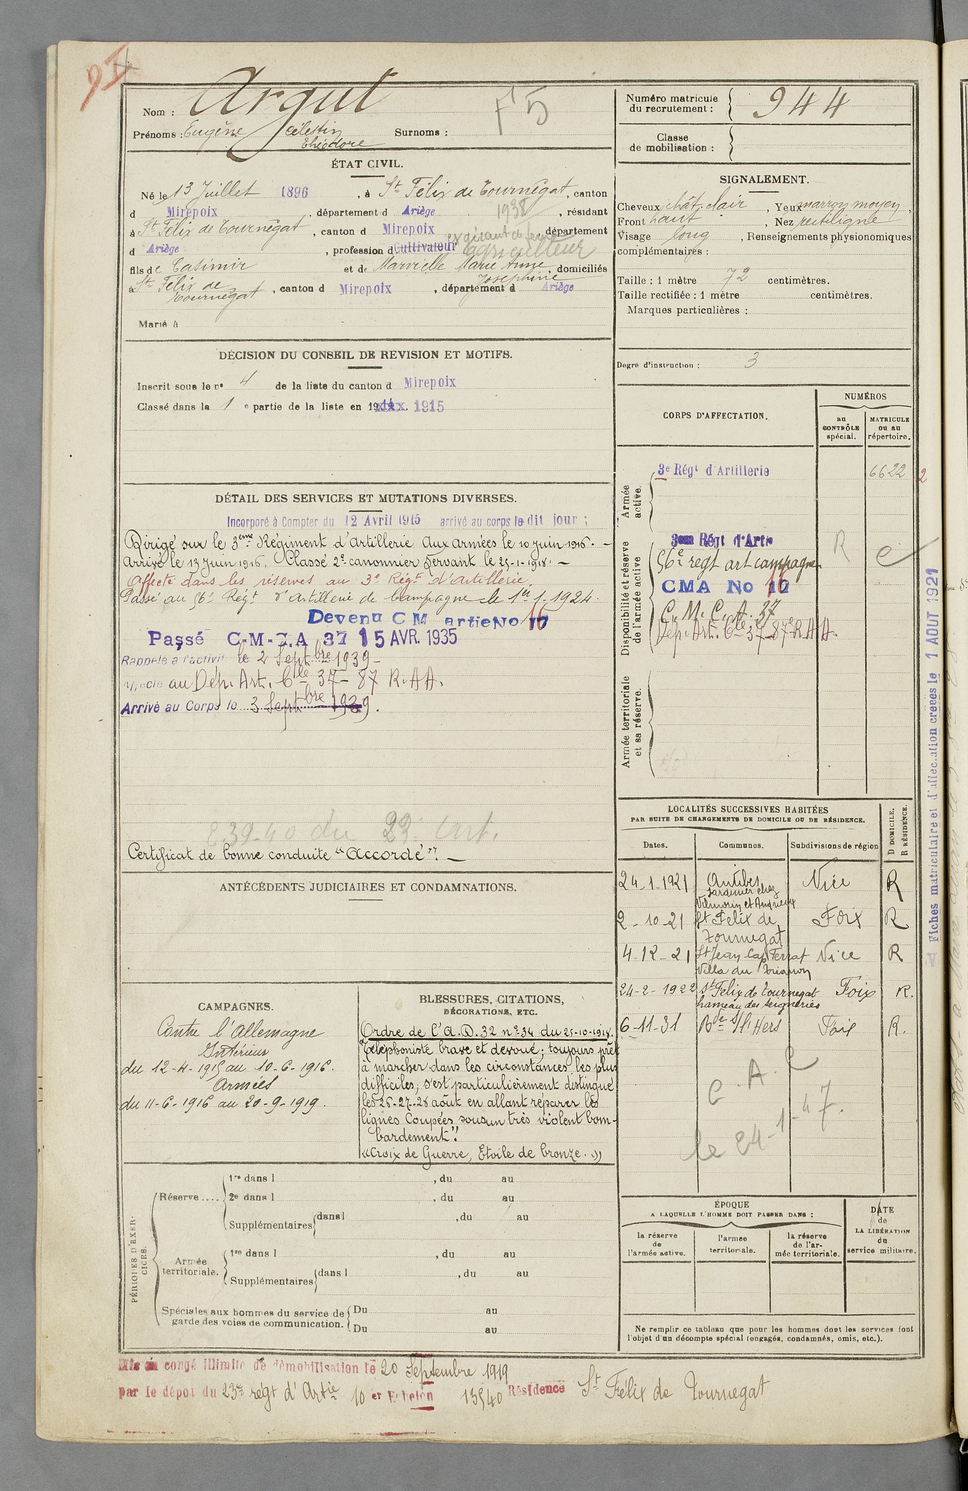 Nom : Argut
F 5
Prénoms : Eugène Célestin Théodore Surnoms :
Numéro matricule du recrutement : 944
Classe de mobilisation :
ÉTAT CIVIL.
Né le 13 Juillet 1896, à St Félix de Tournégat, canton
d Mirepoix, département d Ariège, résidant
1938
à St Félix de Tournégat, canton d Mirepoix département
d Ariège, profession d Cultivateur Agriculteur
fils de Casimir et de Marvielle Marie Anne Joséphine, domiciliés
à St Félix de Tournégat, canton d Mirepoix, département d Ariège
Marié à
SIGNALEMENT.
Cheveux chât. clair, Yeux marron moyen,
Front haut, Nez rectiligne
Visage long, Renseignements physionomiques
complémentaires :
Taille : 1 mètre 72 centimètres.
Taille rectifiée : 1 mètre centimètres.
Marques particulières :
Degré d'instruction : 3
DÉCISION DU CONSEIL DE REVISION ET MOTIFS.
Inscrit sous le n° 4 de la liste du canton d Mirepoix
Classé dans la 1 e partie de la liste en 1915
CORPS D'AFFECTATION.
NUMÉROS
au CONTRÔLE spécial.
MATRICULE ou au répertoire.
Armée active.
3e Régt d'Artillerie 6622
2
Disponibilité et réserve de l'armée active
3eme Régt d'Artie
56e regt art campagne
CMA No 17
C. M. C. A. 37
Dép. Art. Cle 37-87e R.A.A.
R
Armée territoriale et sa réserve.
DÉTAIL DES SERVICES ET MUTATIONS DIVERSES.
Incorporé à Compter du 12 Avril 1915 arrivé au corps le dit jour ;
Dirigé sur le 3ème Régiment d'Artillerie Aux armées le 10 juin 1916. -
Arrivé le 13 juin 1916, Classé 2e canonnier servant le 25-1-1918. -
Affecté dans les réserves au 3e Régt d'Artillerie.
Passé au 56e Régt d'Artillerie de Campagne le 1er 1. 1924.
Devenu C M artie No 17
Passé C-M-C.A 37 15 AVR. 1935
Rappelé à l'activité le 2 Septbre 1939 -
Affecté au Dép. Art. Cle 37 - 87 R.A.A.
Arrivé au Corps le 3 Septbre 1939.
Certificat de bonne conduite "Accordé". -
ANTÉCÉDENTS JUDICIAIRES ET CONDAMNATIONS.
LOCALITÉS SUCCESSIVES HABITÉES
PAR SUITE DE CHANGEMENTS DE DOMICILE OU DE RÉSIDENCE.
D DOMICILE. R RÉSIDENCE.
Dates. Communes. Subdivisions de région
24-1-1921 Antibes Jardinier chez Vilmorin et Andrieux Nice R
2-10-21 St Felix de Tournegat Foix R
4-12-21 St Jean Cap Ferrat Villa du Nice R
24-2-1922 St Felix de Tournegat hameau des Seigneries Foix R.
6-11-31 Foix R.
C. A. C
le 24-1-47.
Fiches matriculaire et d'affectation créées le 1 AOUT 1921
CAMPAGNES.
Contre l'Allemagne
Intérieur
du 12-4-1915 au 10-6-1916.
Armées
du 11-6-1916 au 20-9-1919.
BLESSURES, CITATIONS,
DÉCORATIONS, ETC.
Ordre de l'A.D. 32 n° 34 du 25-10-1918.
"Téléphoniste brave et devoué ; toujours prêt
à marcher dans les circonstances les plus
difficiles, s'est particulièrement distingué
les 26-27-28 août en allant réparer les
lignes coupées sous un très violent bom-
bardement".
«Croix de Guerre, Etoile de bronze.»
PÉRIODES D'EXERCICES.
Réserve.... 1re dans l , du au
2e dans l , du au
Supplémentaires dans l , du au
Armée territoriale. 1re dans l , du au
Supplémentaires dans l , du au
Spéciales aux hommes du service de garde des voies de communication. Du au
Du au
ÉPOQUE
A LAQUELLE L'HOMME DOIT PASSER DANS :
la réserve de l'armée active.
l'armée territoriale.
la réserve de l'armée territoriale.
DATE de LA LIBÉRATION du service militaire.
Ne remplir ce tableau que pour les hommes dont les services font
l'objet d'un décompte spécial (engagés, condamnés, omis, etc.).
Mis en congé illimité de démobilisation le 20 Septembre 1919
par le dépôt du 23me régt d'Artie 10 er Echelon 13540 Résidence St Félix de Tournegat